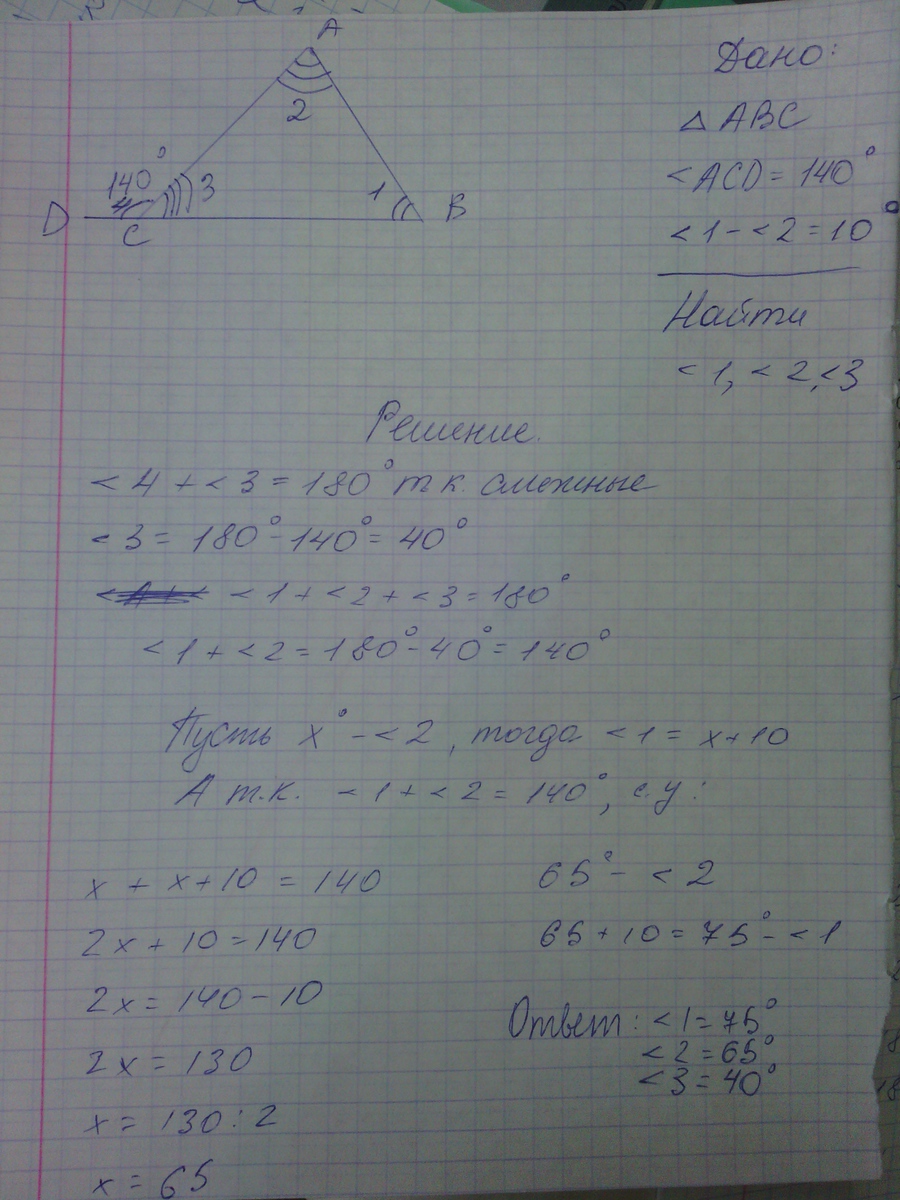 A
2
140°
4
3
1
D
C
B
Дано:
△ ABC
<ACD = 140°
<1 - <2 = 10°
Найти
<1, <2, <3
Решение.
<4 + <3 = 180° т.к. смежные
<3 = 180° - 140° = 40°
<1 + <2 + <3 = 180°
<1 + <2 = 180° - 40° = 140°
Пусть x° - <2, тогда <1 = x+10
А т.к. <1 + <2 = 140°, с.у:
x + x+10 = 140
2x + 10 = 140
2x = 140 - 10
2x = 130
x = 130 : 2
x = 65
65° - <2
65 + 10 = 75° - <1
Ответ: <1 = 75°
<2 = 65°
<3 = 40°